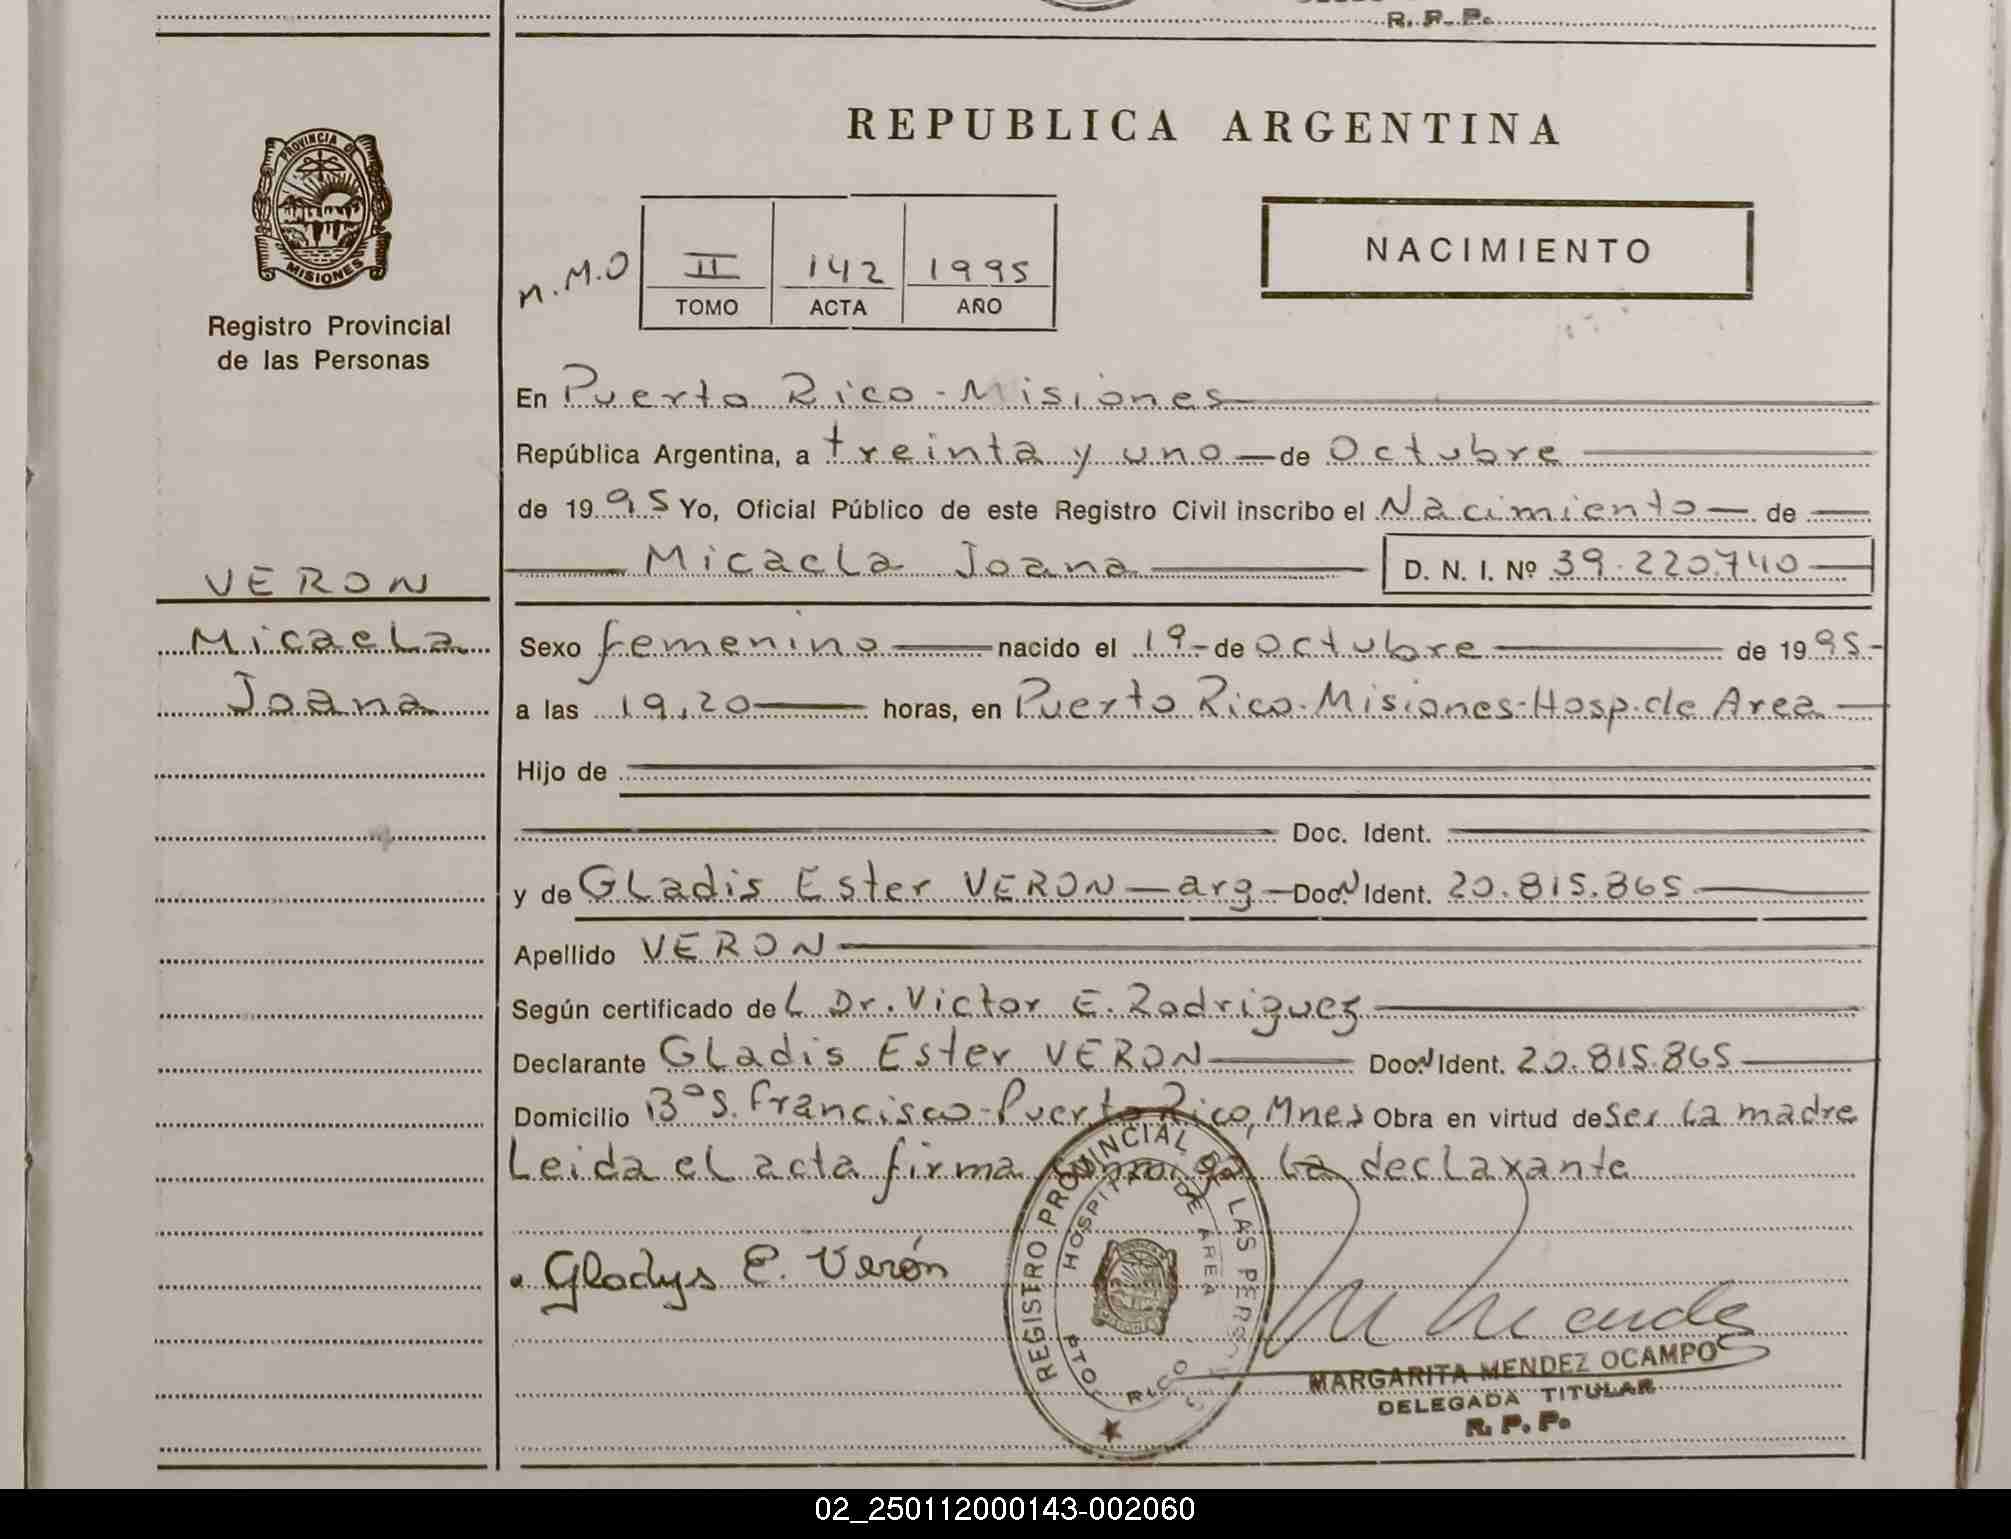 R. P. P.
REPUBLICA ARGENTINA
PROVINCIA DE
MISIONES
Registro Provincial
de las Personas
M.M.O
II 142 1995
TOMO ACTA AÑO
NACIMIENTO
En Puerto Rico - Misiones
República Argentina, a treinta y uno — de Octubre
de 1995 Yo, Oficial Público de este Registro Civil inscribo el Nacimiento — de
Micaela Joana D. N. I. Nº 39.220.740
VERON
Micaela
Joana
Sexo femenino nacido el 19 - de octubre de 1995 -
a las 19,20 horas, en Puerto Rico - Misiones - Hosp. de Area
Hijo de
Doc. Ident.
y de Gladis Ester VERON — arg — Doc. N Ident. 20.815.865
Apellido VERON
Según certificado del Dr. Victor E. Rodriguez
Declarante Gladis Ester VERON Doc. N Ident. 20.815.865
Domicilio Bº S. Francisco - Puerto Rico, Mnes Obra en virtud de ser la madre
Leida el acta firma la declarante
Gladys E. Verón
REGISTRO PROVINCIAL DE LAS
HOSPITAL DE AREA
PTO. RICO
M Mendez
MARGARITA MENDEZ OCAMPO
DELEGADA TITULAR
R. P. P.
02_250112000143-002060